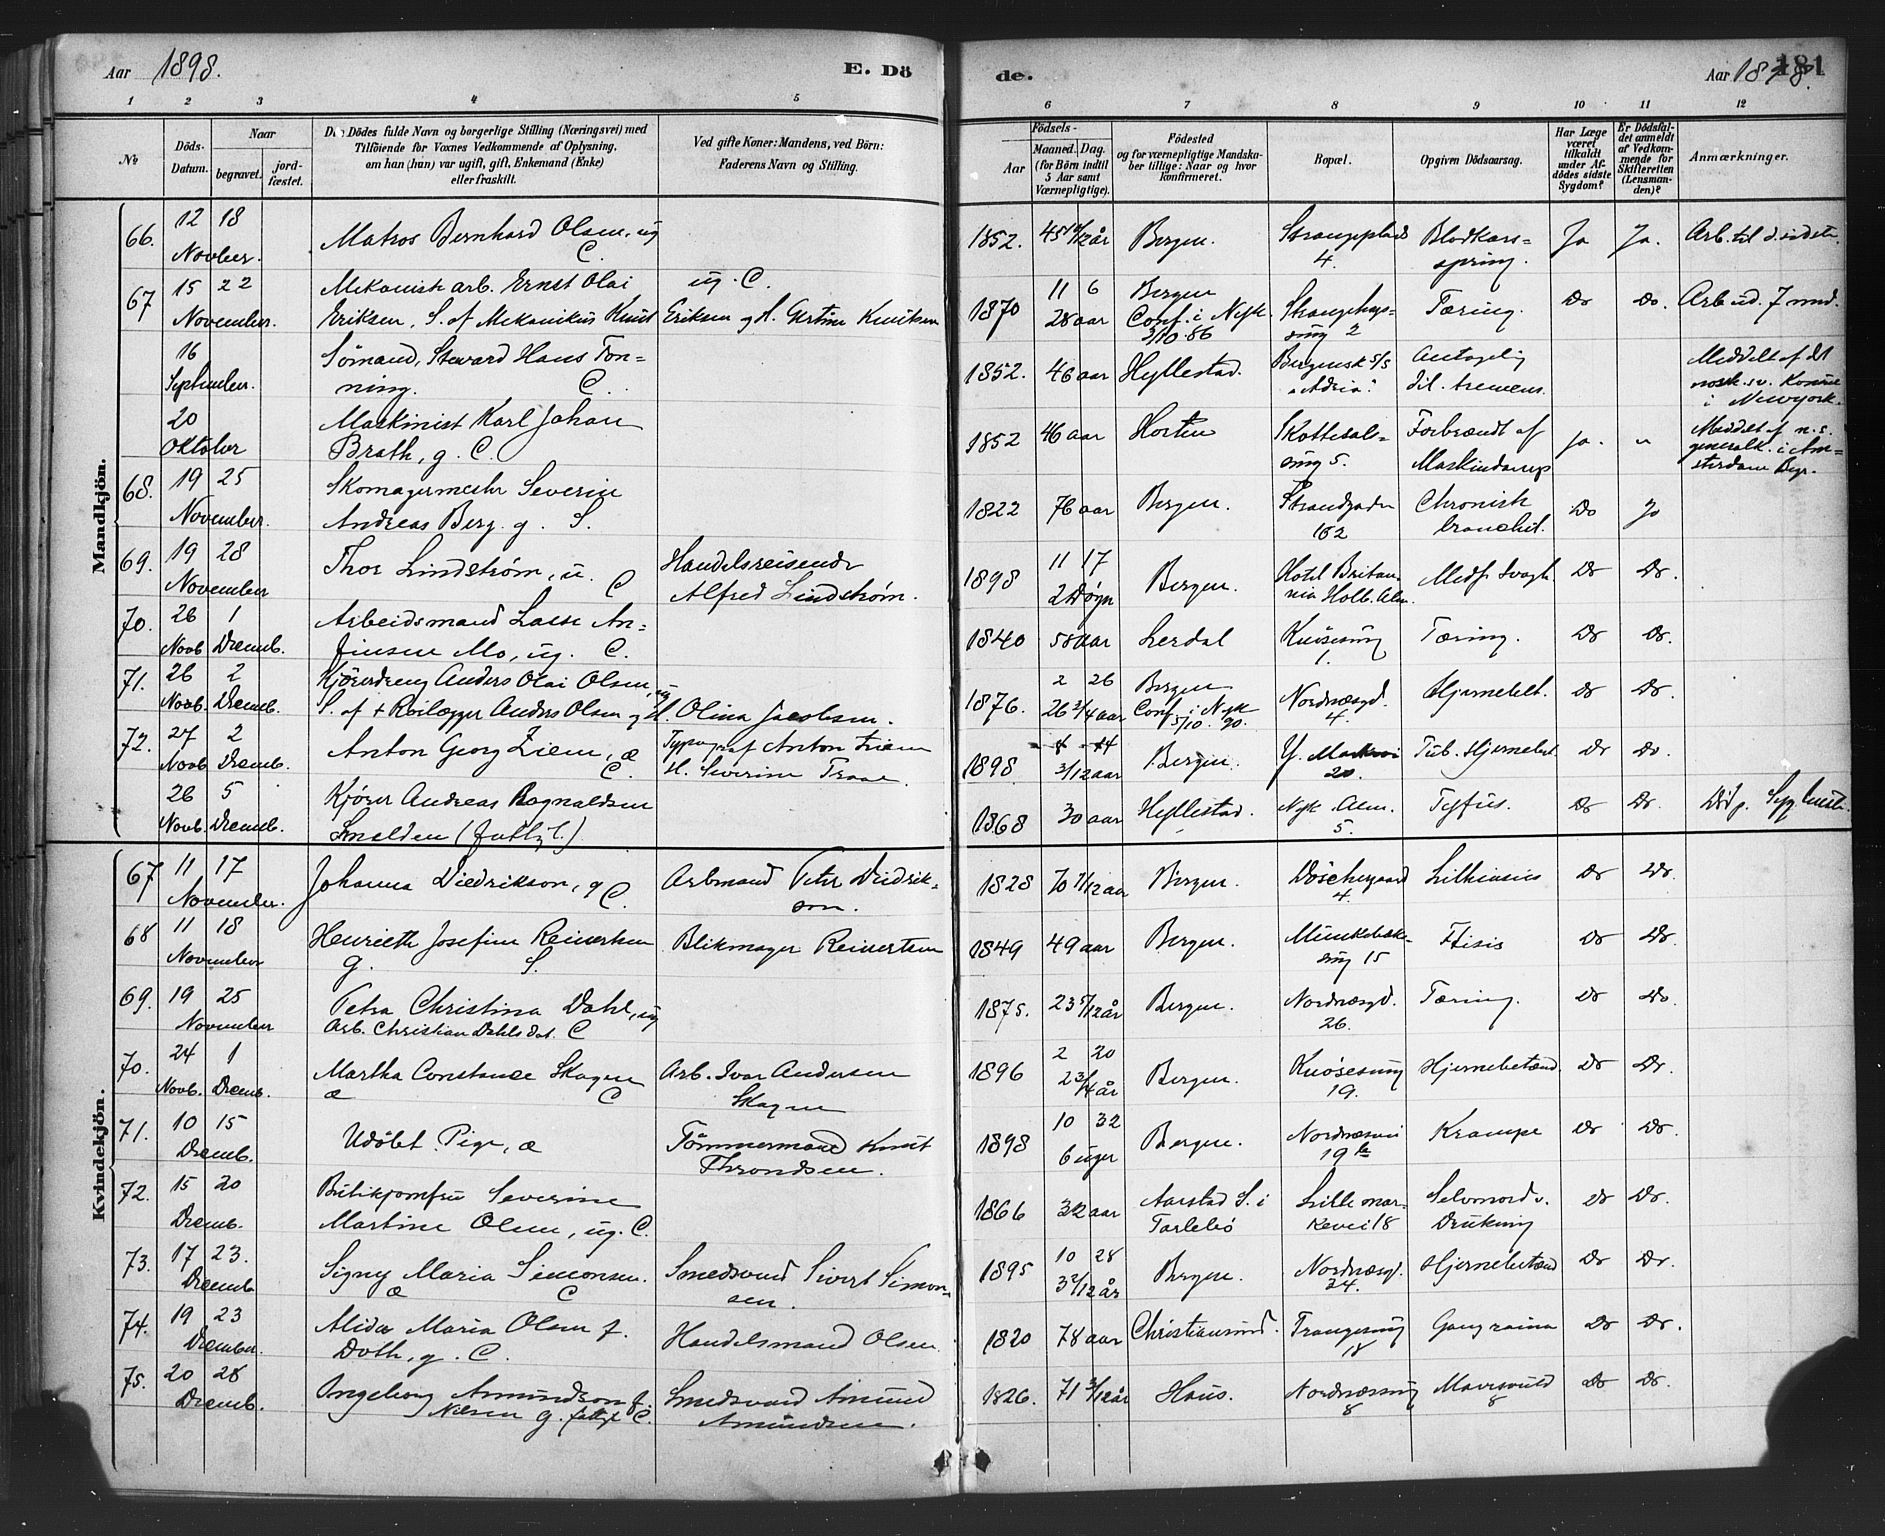 Aar 1898. E. Dö
de. Aar 1898. 181
1 2 3 4 5 6 7 8 9 10 11 12
No
Döds-
Datum.
Naar
begravet.
jord-
fæstet.
Den Dödes fulde Navn og borgerlige Stilling (Næringsvei) med
Tilföiende for Voxnes Vedkommende af Oplysning,
om han (hun) var ugift, gift, Enkemand (Enke)
eller fraskilt.
Ved gifte Koner: Mandens, ved Börn:
Faderens Navn og Stilling.
Födsels-
Aar
Maaned. Dag.
(for Börn indtil
5 Aar samt
Værnepligtige).
Födested
og for værnepligtige Mandska-
ber tillige: Naar og hvor
konfirmeret.
Bopæl.
Opgiven Dödsaarsag.
Har Læge
været
tilkaldt
under Af-
dödes sidste
Sygdom?
Er Dödsfal-
det anmeldt
af Vedkom-
mende for
Skifteretten
(Lensman-
den)?
Anmærkninger.
Mandkjön.
66. 12 18 Novber. Matros Bernhard Olsen, ug C. 1852. 45 10/12 år Bergen. Strangeplads 4. Blodkars-
spring. Ja Ja. Arb. til d. sidste.
67 15 22 November. Mekanisk arb. Ernst Olai ug. C.
Eriksen, S. af Mekanikus Knut Eriksen og H. Gertine Knutsen 1870 11 6 28 aar Bergen
Conf. i Nyk. 3/10 86 Strangehags-
smug 2 Tæring. Do Do. Arb. ud. 7 mnd.
16 September. Sömand, Steward Hans Ton-
ning. C. 1852. 46 aar Hyllestad. Bergensk S/S
"Adria". Antagelig
dil. tremens. Meddelt af det
norsk. sv. Konsul
i Newyork.
20 Oktober Maskinist Karl Johan
Brath, g. C. 1852 46 aar Horten Skottesals-
smug 5. Forbrændt af
Maskindamp Ja. " Meddelt af n. s.
generalk. i Am-
sterdam
68. 19 25 November. Skomagermester Severin
Andreas Berg. g. S. 1822 76 aar Bergen. Strandgaden
162 Chronisk
bronchit. Do Ja
69. 19 28 November Thor Lindström, u. C Handelsreisende
Alfred Lindström. 1898 11 17 2 Døgn Bergen. Hotel Britan-
nia Holb. Alm. Medf. Svagh. Do Do.
70. 26 1 Novb. Decemb. Arbeidsmand Lasse An-
finsen Mo, ug. C. 1840 58 aar Lerdal Knøsesmug
1. Tæring. Do Do.
71. 26 2 Novb. Decemb. Kjöredreng Anders Olai Olsen, ug
S. af + Anders Olsen og H. Olina Jacobsen. 1876. 2 26 aar Bergen
Conf. i Nyk 5/10. 90. Nordnæsgd.
4. Hjernebet. Do Do.
72. 27 2 Novb. Decemb. Anton Georg Ziem, æ C. Typograf Anton Ziem
H. Severine Traae 1898 3/12 aar Bergen. Y. Markevei
20. Tub. Hjernebet. Do Do
26 5 Novb. Decemb. Kjörer Andreas Rognaldsen
Smelden 1868 30 aar Hyllestad. Nyk. Alm.
5. Tyfus. Do Do.
Kvindekjön.
67 11 17 November. Johanna Diedrikson, g C. Arbmand Peter Diedrik-
son. 1828 70 7/12 aar Bergen. Döschergaard
4. Do Do.
68 11 18 November Henriette Josefine Reinertsen
g. S. Blikmager Reinertsen 1849 49 aar Bergen. Munkebæk-
smug 15 Ftisis Do Do.
69. 19 25 November Petra Christina Dahl, ug
Arb. Christian Dahls dat. C 1875. 23 5/12 år Bergen. Nordnæsgd.
26. Tæring. Do Do.
70. 24 1 Novb. Decemb. Martha Constance Skagen
æ C Arb. Ivar Andersen
Skagen 1896 2 20 2 3/4 år Bergen. Knøsesmug
19. Hjernebetænd. Do Do.
71. 10 15 Decemb. Udöbt Pige, æ Tömmermand Knut
Throndsen. 1898 10 32 6 uger Bergen. Nordnæsvei
19 b Krampe Do Do.
72. 15 20 Decemb. Butikjomfru Severine
Martine Olsen, ug. C. 1866 32 aar Aarstad S. i
Tarlebö Lille mar-
kevei 18 Selvmord v.
Drukning Do Do.
73. 17 23. Decemb Signy Maria Simonsen.
æ C Smedsvend Sivert Simon-
sen. 1895 10 28 3 2/12 år Bergen. Nordnæsgd.
34. Hjernebetænd Do Do.
74. 19 23 December Alida Maria Olsen f.
Doth, g. C. Handelsmand Olsen. 1820 78 aar Christiansund. Trangesmug
18 Gangraina Do Do.
75. 20 28 Decemb. Ingeborg Amundson f.
Nilsen g. fattigl C. Smedsvend Amund
Amundsen. 1826. 71 3/12 år Haus. Nordnæssmug
8 Mavesvuld Do Do.